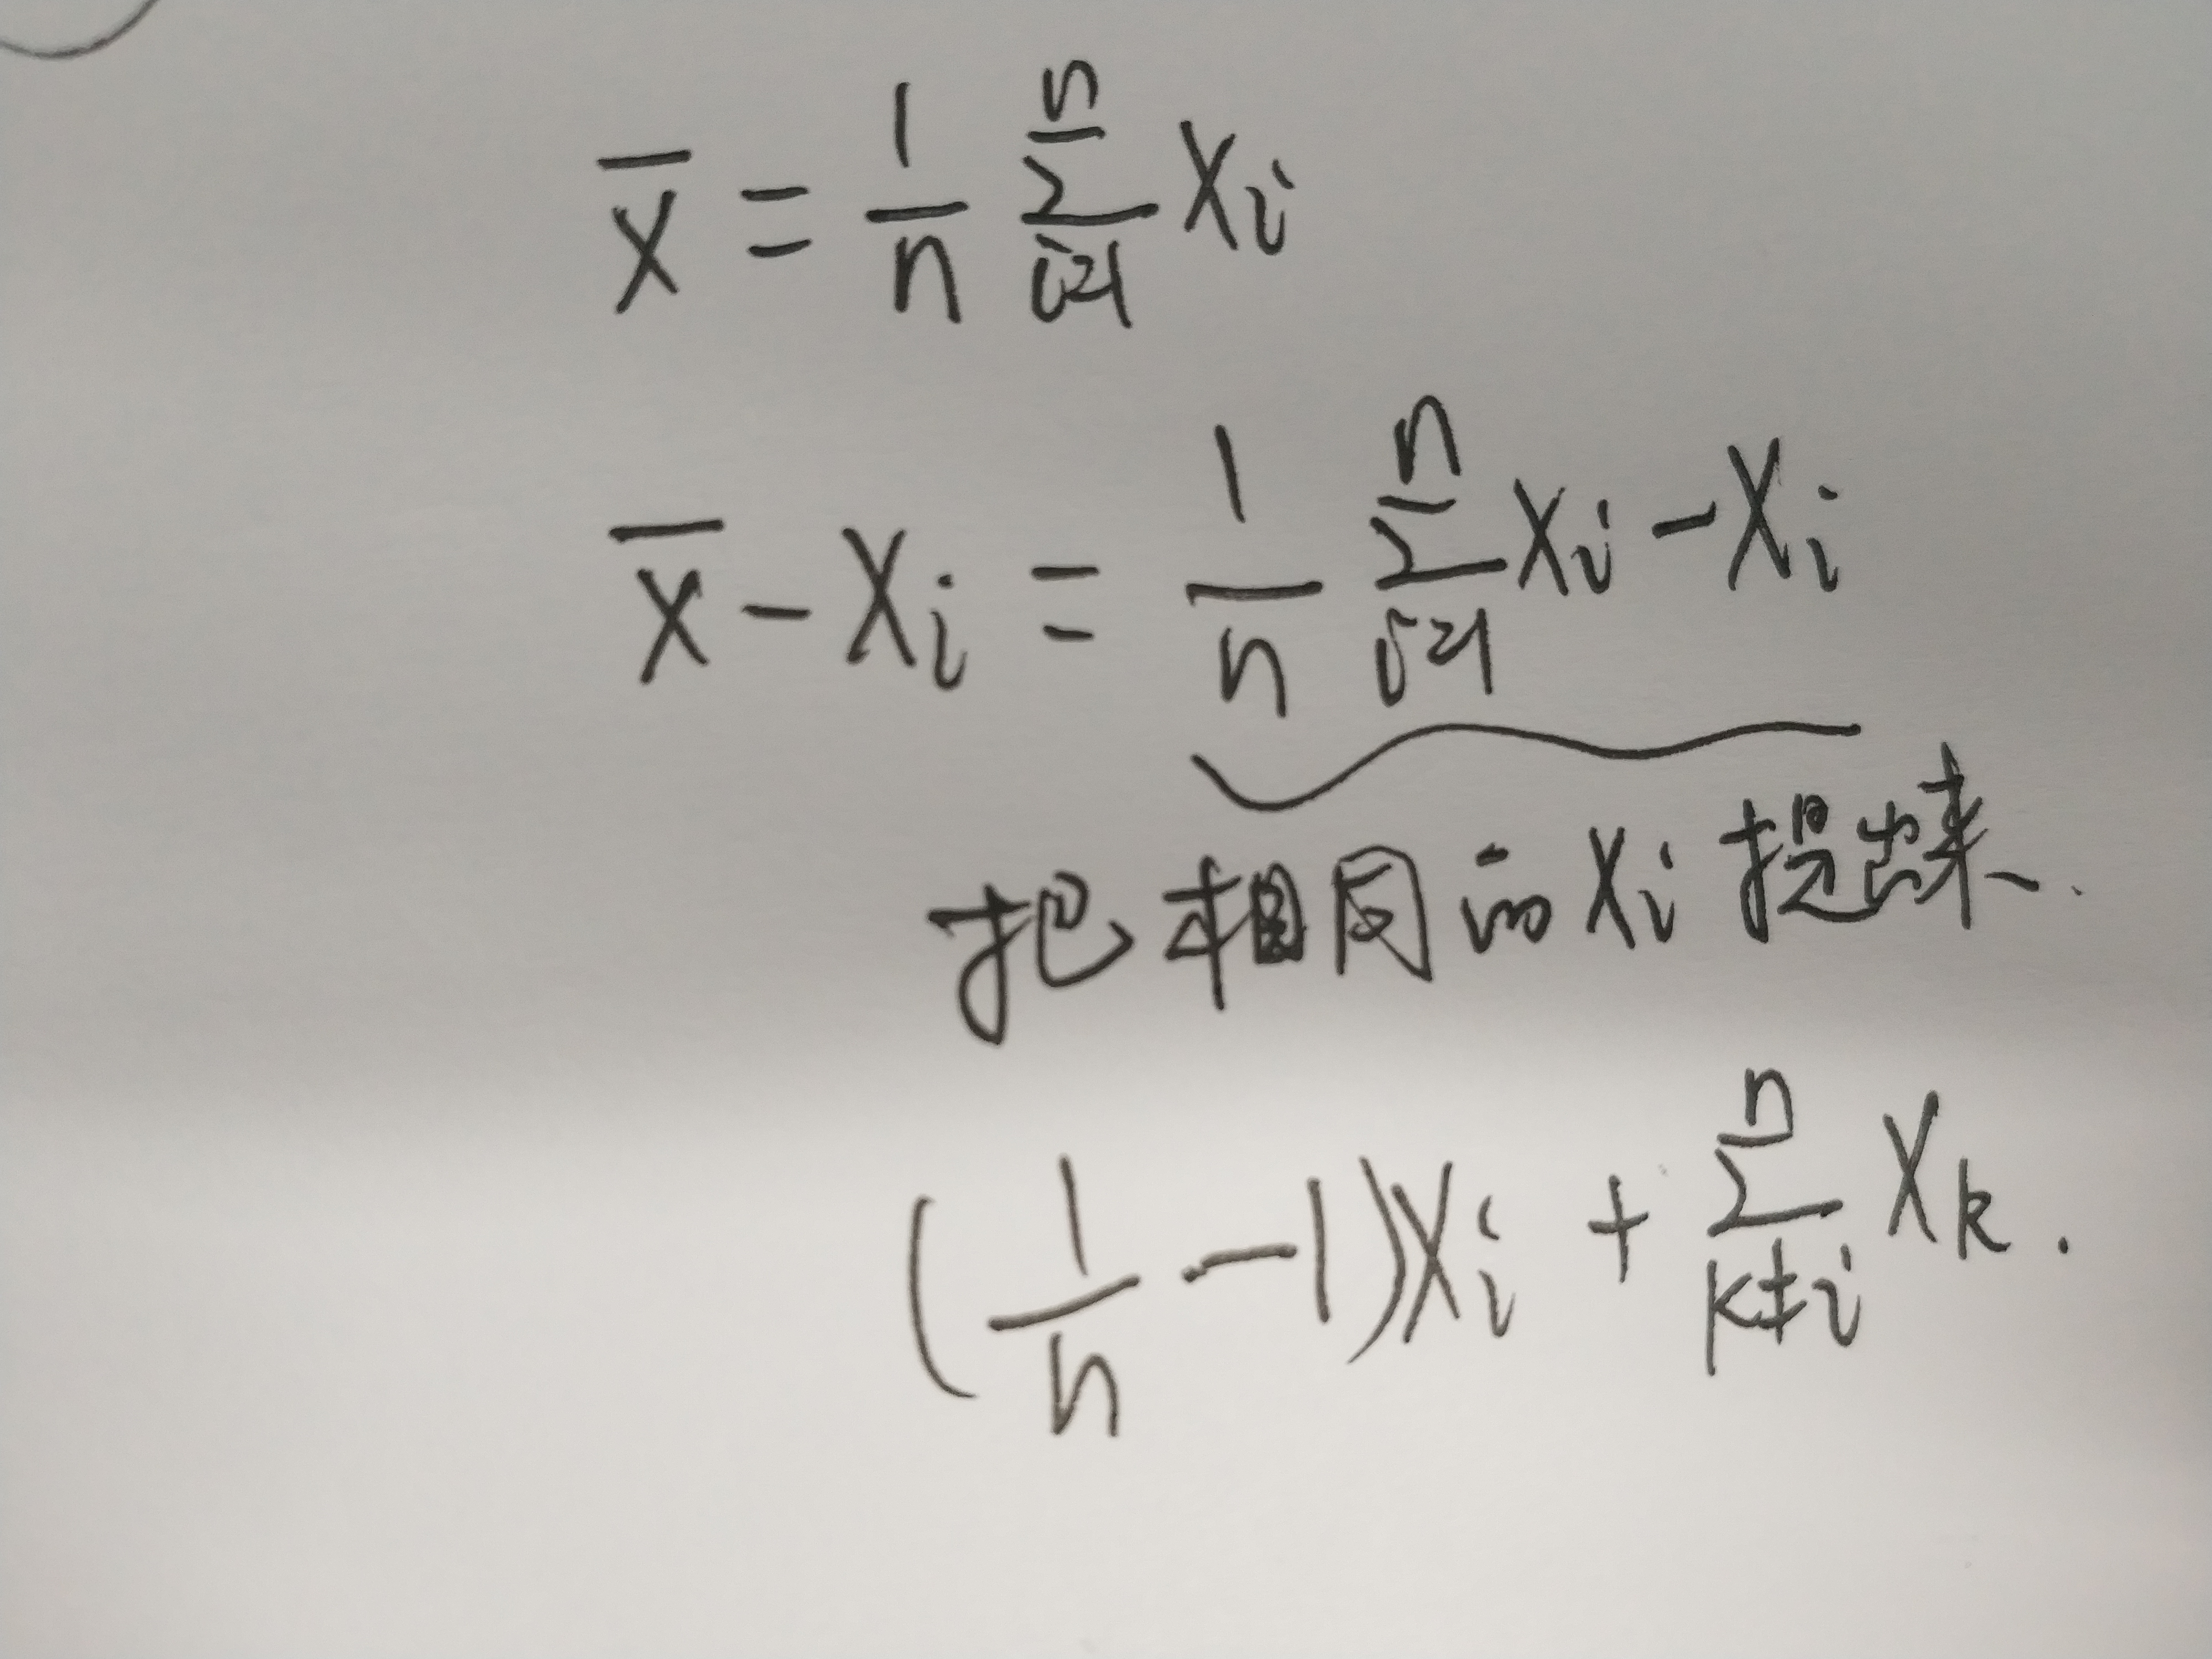 x̄ = 1/n ∑_{i=1}^{n} Xi
x̄ - Xi = 1/n ∑_{i=1}^{n} Xi - Xi
把相同的Xi提出来.
(1/n - 1)Xi + ∑_{k≠i}^{n} Xk.